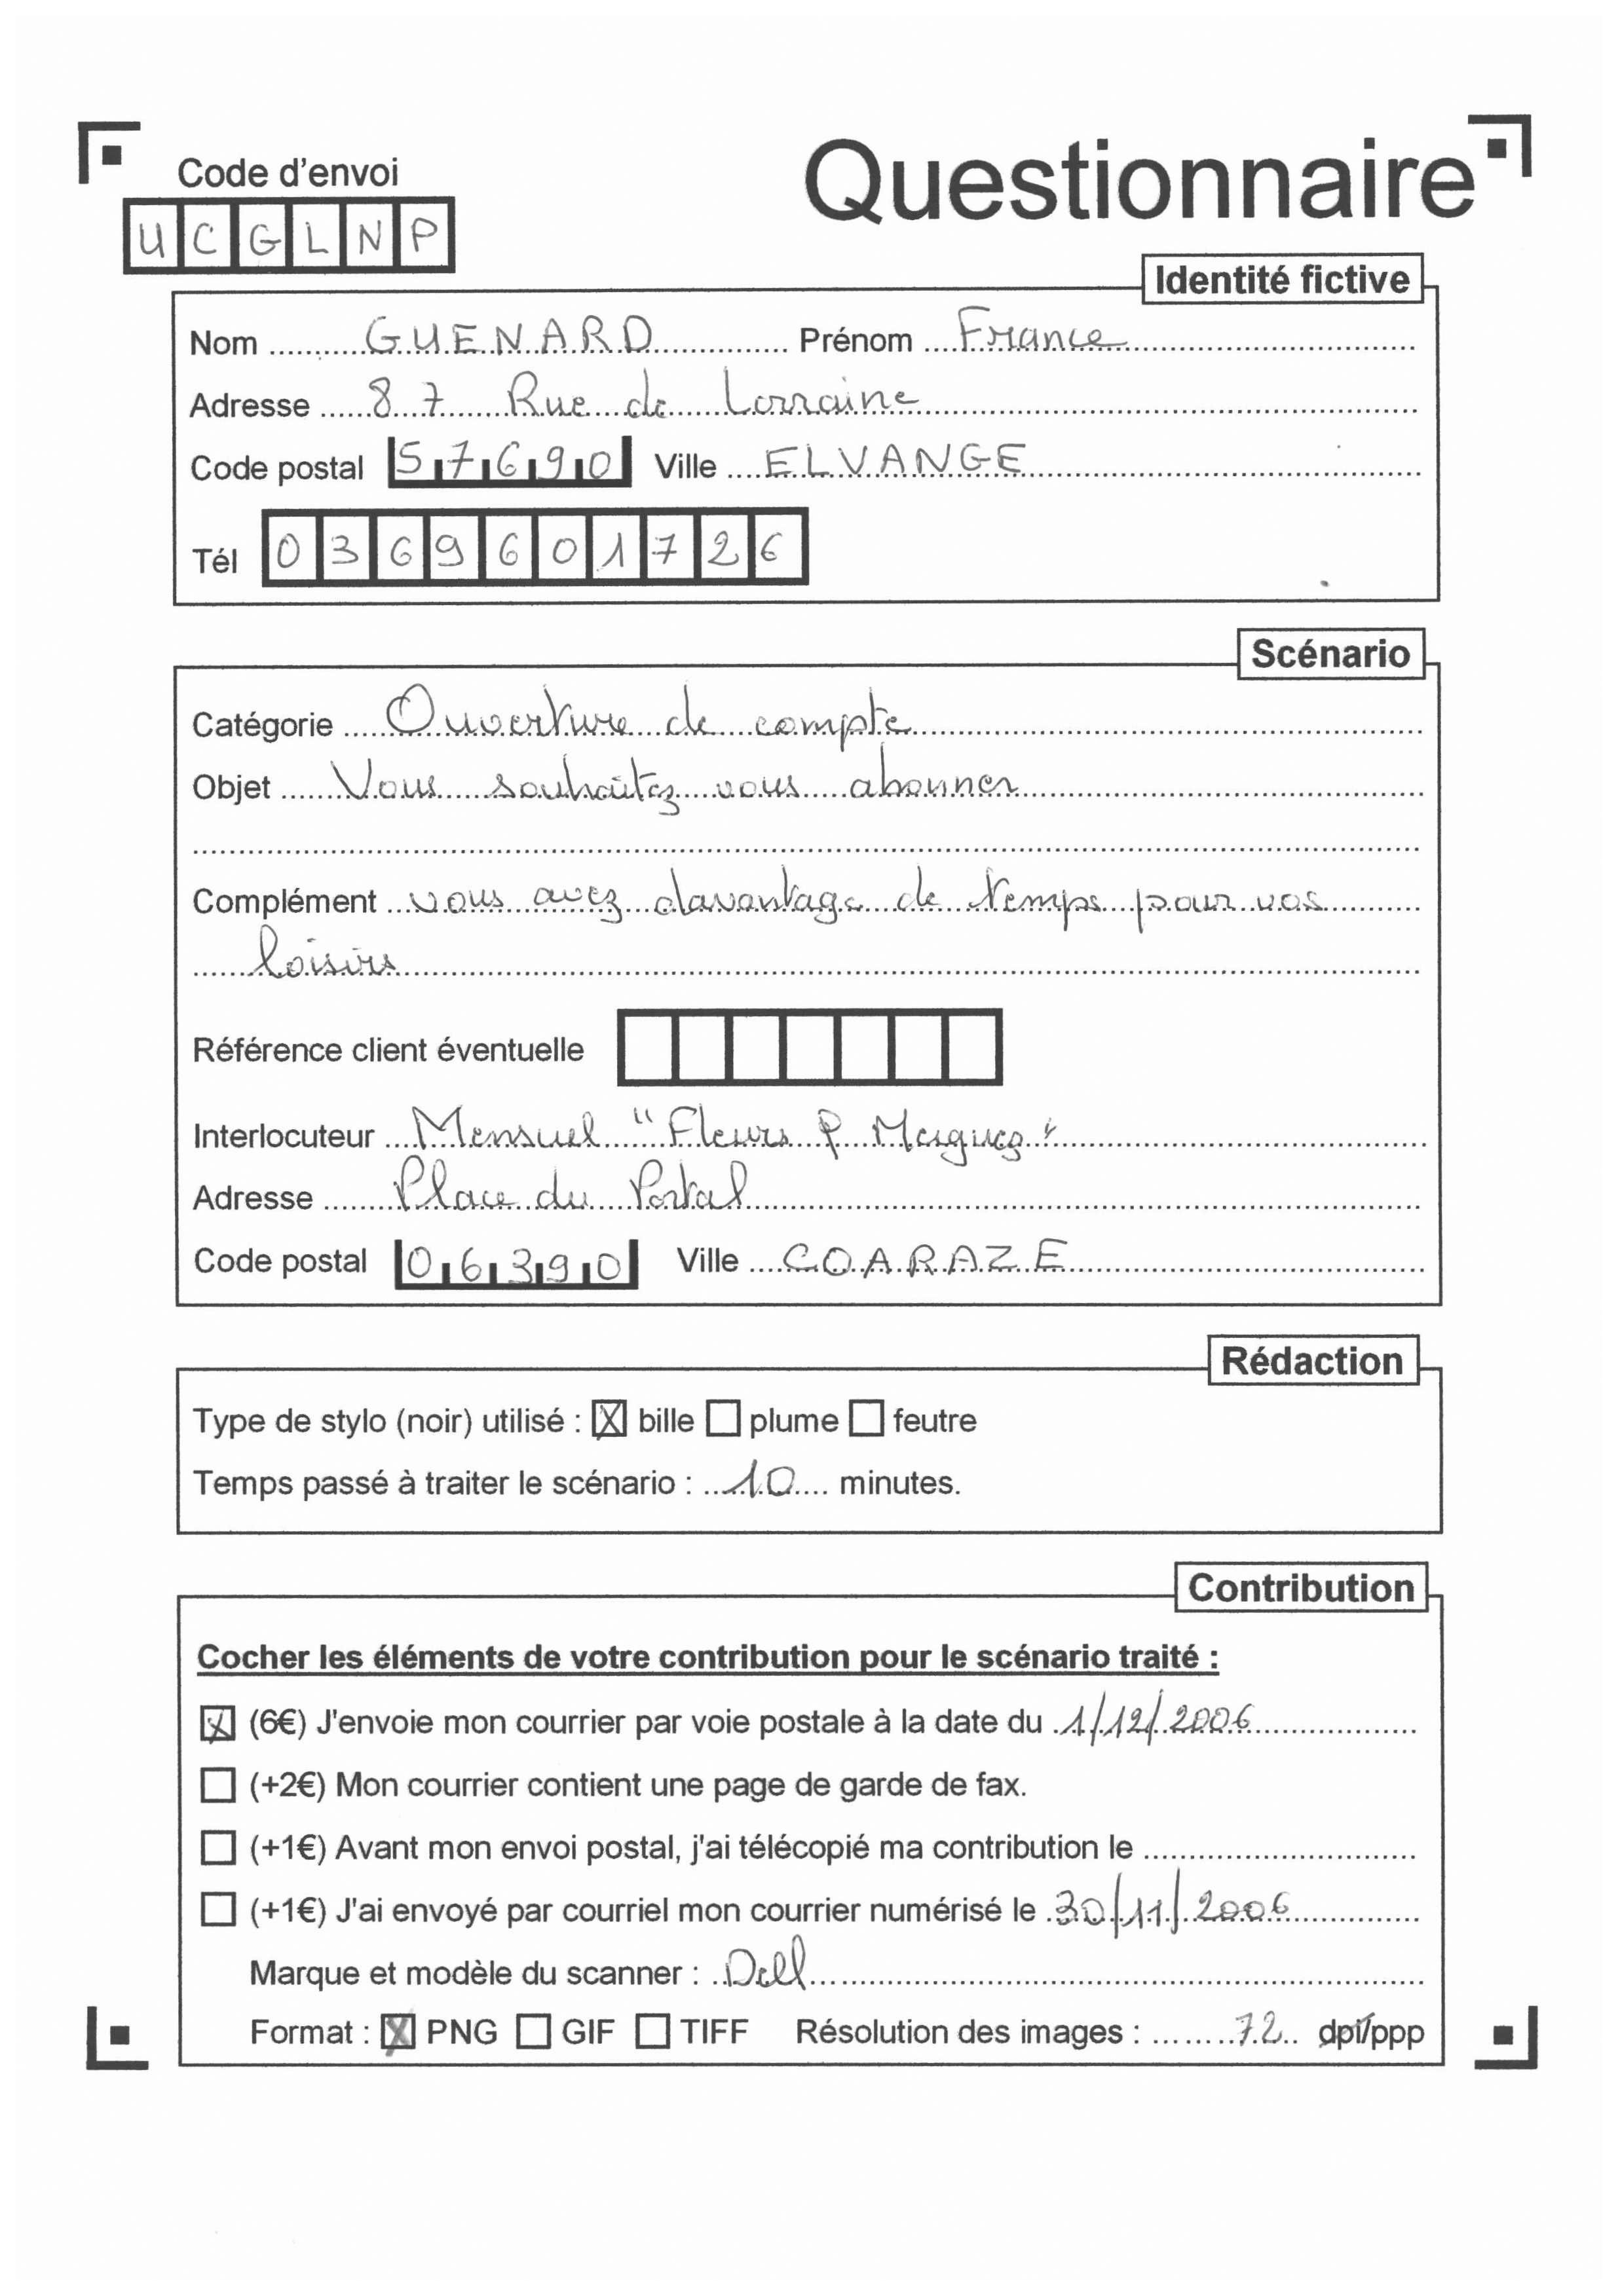 Code d'envoi
Questionnaire
UCGLNP
Identité fictive
Nom GUENARD Prénom France
Adresse 87 Rue de Lorraine
Code postal 57690 Ville ELVANGE
Tél 0369601726
Scénario
Catégorie Ouverture de compte
Objet Vous souhaitez vous abonner
Complément vous avez davantage de temps pour vos
loisirs
Référence client éventuelle
Interlocuteur Mensuel "Fleurs &
Adresse Place du Portal
Code postal 06390 Ville COARAZE
Rédaction
Type de stylo (noir) utilisé : bille plume feutre
Temps passé à traiter le scénario : 10 minutes.
Contribution
Cocher les éléments de votre contribution pour le scénario traité :
(6€) J'envoie mon courrier par voie postale à la date du 1/12/2006
(+2€) Mon courrier contient une page de garde de fax.
(+1€) Avant mon envoi postal, j'ai télécopié ma contribution le
(+1€) J'ai envoyé par courriel mon courrier numérisé le 30/11/2006
Marque et modèle du scanner : Dell
Format : PNG GIF TIFF Résolution des images : 72 dpi/ppp